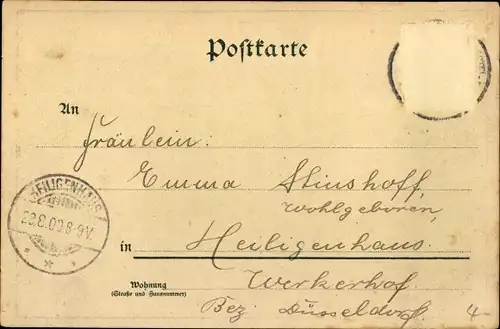 Postkarte
An
Fräulein:
Emma Stinshoff,
wohlgeboren,
in Heiligenhaus.
Werkerhof
Wohnung
(Straße und Hausnummer)
Bez. Düsseldorf
4
HEILIGENHAUS
8-9V.